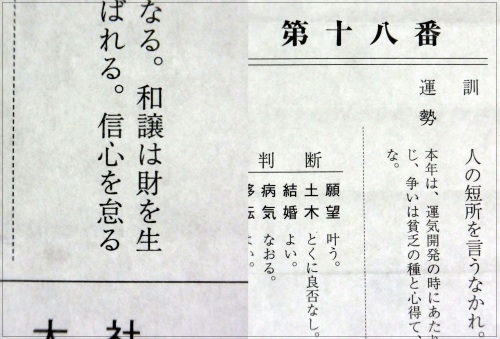 第十八番
訓 人の短所を言うなかれ。
運勢 本年は、運気開発の時にあたり
じ、争いは貧乏の種と心得て、
な。
判断
願望 叶う。
土木 とくに良否なし。
結婚 よい。
病気 なおる。
移転 よい。
なる。和譲は財を生
ばれる。信心を怠る
大社